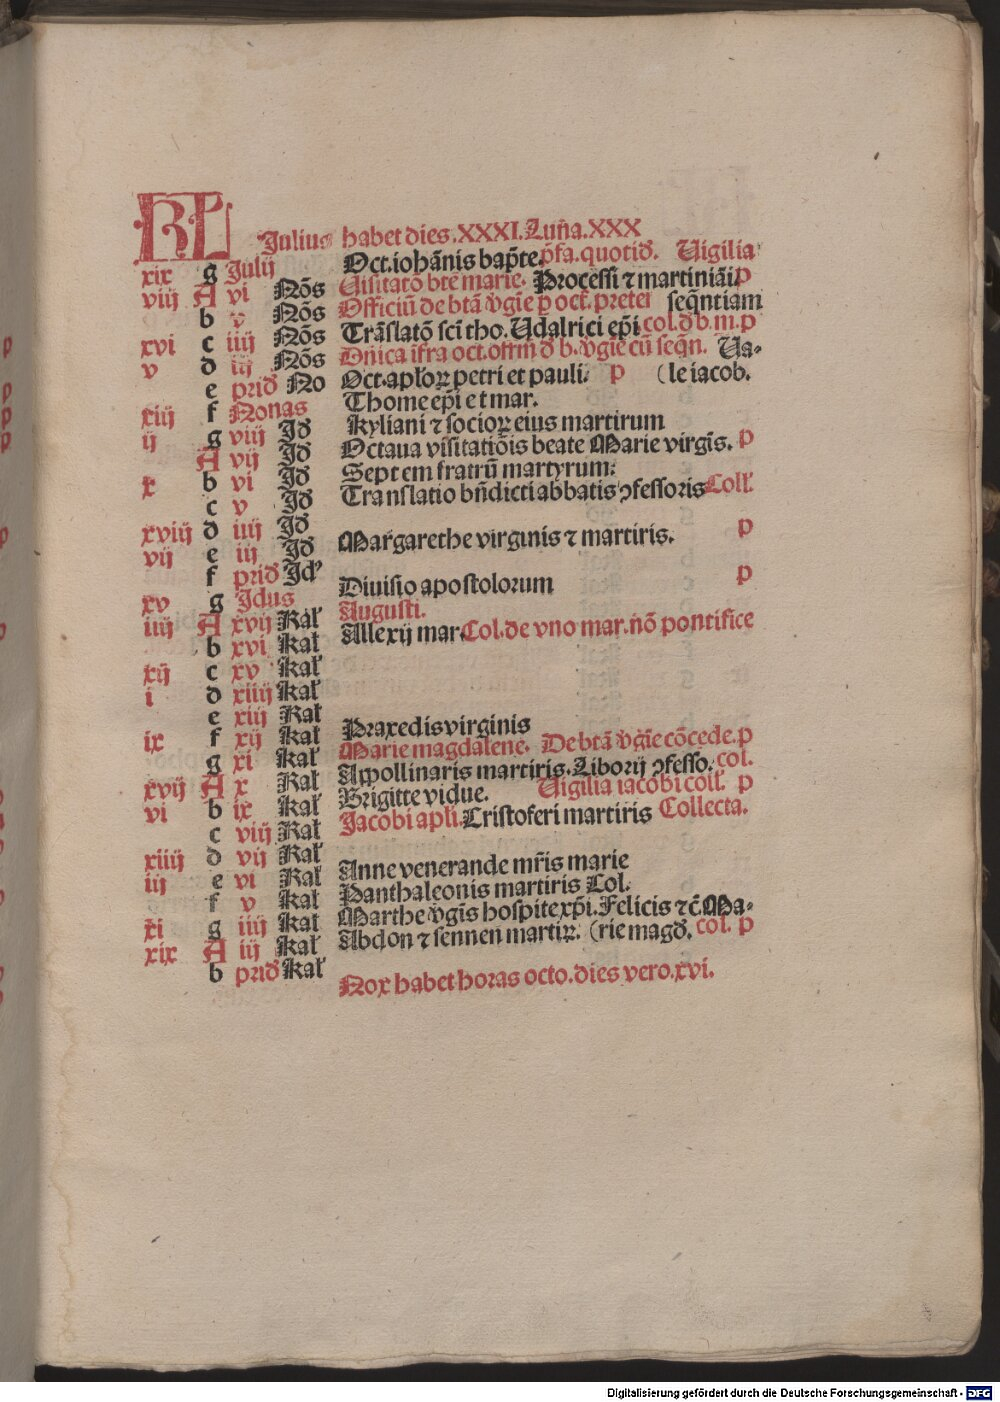 KL Julius habet dies.XXXI.Luña.XXX
xix g Julij Oct.iohãnis bap̃te.p̃fa.quotid̃. Uigilia
viij A vi Nõs Uisitatõ bte marie. Processi ⁊ martiniãi p
b v Nõs Officiũ de btã v̾gĩe p oct̃. preter seq̃ntiam
xvi c iiij Nõs Trãslatõ sci tho. Udalrici ep̃i col.d̾ b.m.p
v d iij Nõs Dñica ifra oct. offm̃ d̾ b. v̾gĩe cũ seq̃n. Ua-
e prid̾ No Oct.apl'oꝝ petri et pauli. p (le iacob.
xiij f Nonas Thome ep̃i et mar.
ij g viij Jd̾ Kyliani ⁊ socioꝝ eius martirum
A vij Jd̾ Octaua visitatiõis beate Marie virgĩs. p
x b vi Jd̾ Septem fratrũ martyrum.
c v Jd̾ Translatio bñdicti abbatis ꝯfessoris Coll'.
xviij d iiij Jd̾
vij e iij Jd̾ Margarethe virginis ⁊ martiris. p
f prid̾ Jd'
xv g Jdus Diuisio apostolorum p
iiij A xvij Kal' Augusti.
b xvi Kal' Allexij mar.Col.de vno mar.nõ pontifice
xij c xv Kal'
i d xiiij Kal'
e xiij Kal'
ix f xij Kal' Praxedis virginis
g xi Kal' Marie magdalene. De btã v̾gĩe cõcede.p
xvij A x Kal' Appollinaris martiris.Liborij ꝯfesso. col.
vi b ix Kal' Brigitte vidue. Uigilia iacobi coll'. p
c viij Kal' Jacobi apl'i.Cristoferi martiris Collecta.
xiiij d vij Kal'
iij e vi Kal' Anne venerande mr̃is marie
f v Kal' Panthaleonis martiris Col.
xi g iiij Kal' Marthe v̾gĩs hospite xp̃i.Felicis ⁊c̃.Ma-
xix A iij Kal' Abdon ⁊ sennen martiꝝ. (rie magd̾. col. p
b prid̾ Kal'
Nox habet horas octo.dies vero.xvi.
Digitalisierung gefördert durch die Deutsche Forschungsgemeinschaft - DFG